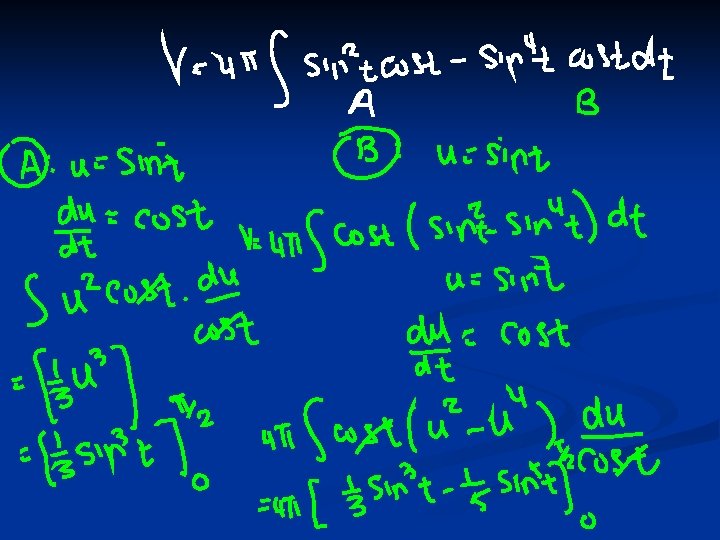 V = 4π ∫ sin²t cost − sin⁴t cost dt
A B
A: u = sint
du/dt = cost
∫ u² cost · du/cost
= [1/3 u³]
= [1/3 sin³t]₀^π/2
B: u = sint
V = 4π ∫ cost (sin²t − sin⁴t) dt
u = sint
du/dt = cost
4π ∫ cost (u² − u⁴) du/cost
= 4π [1/3 sin³t − 1/5 sin⁵t]₀^π/2